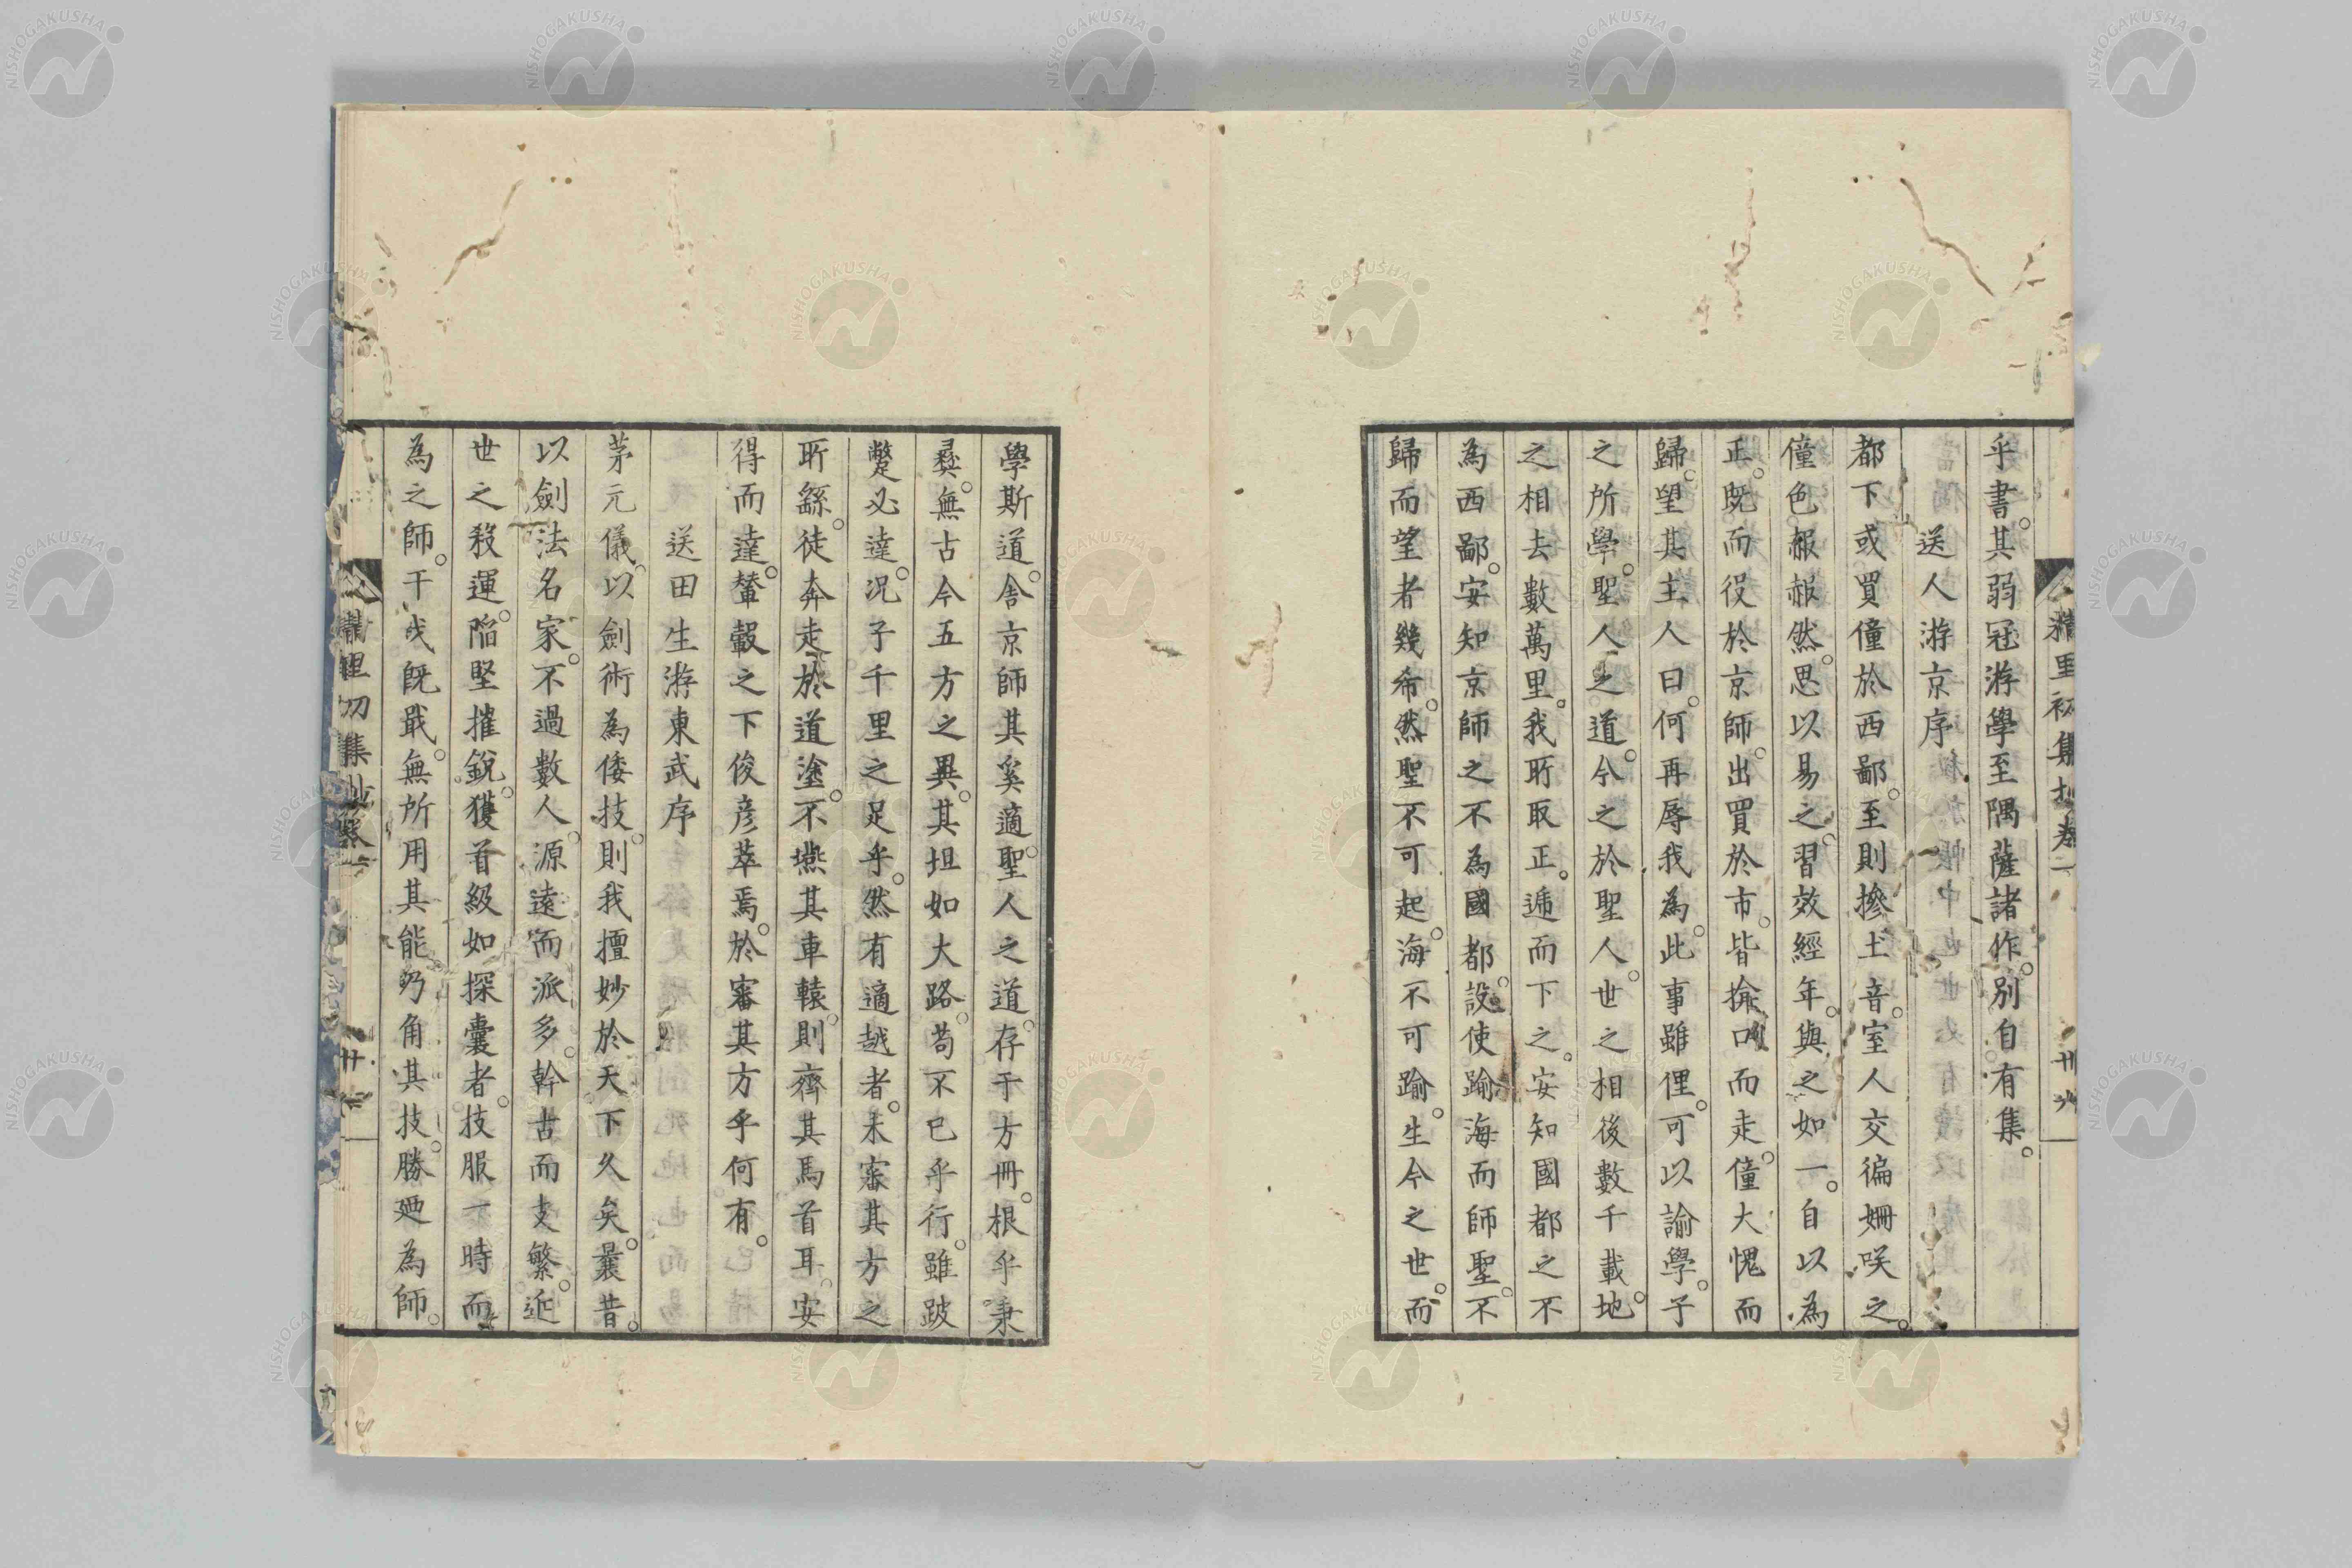 精里初集抄卷二
廿九
乎書。其弱冠游學至隅薩諸作。別自有集。
送人游京序
都下或買僮於西鄙。至則摻土音。室人交徧姍咲之。
僮色赧赧然。思以易之。習效經年。與之如一。自以為
正。既而役於京師。出買於市。皆掩口而走。僮大愧而
歸。望其主人曰。何再辱我為。此事雖俚。可以諭學。子
之所學。聖人之道。今之於聖人。世之相後數千載。地
之相去數萬里。我所取正。遞而下之。安知國都之不
為西鄙。安知京師之不為國都。設使踰海而師聖。不
歸而望者幾希。然聖不可起。海不可踰。生今之世。而
學斯道。舍京師其奚適。聖人之道。存于方冊。根乎秉
彝。無古今五方之異。其坦如大路。苟不已乎行。雖跛
鼈必達。況子千里之足乎。然有適越者。未審其方之
所繇。徒奔走於道塗。不壖其車轅。則齊其馬首耳。安
得而達。輦轂之下俊彥萃焉。於審其方乎何有。
送田生游東武序
茅元儀以劍術為倭技。則我擅妙於天下久矣。曩昔。
以劍法名家。不過數人。源遠而派多。幹古而支繁。近
世之殺運。陷堅摧銳。獲首級如探囊者。技服一時而
為之師。干戈既戢。無所用其能。乃角其技。勝廼為師。
精里初集抄卷二
NISHOGAKUSHA